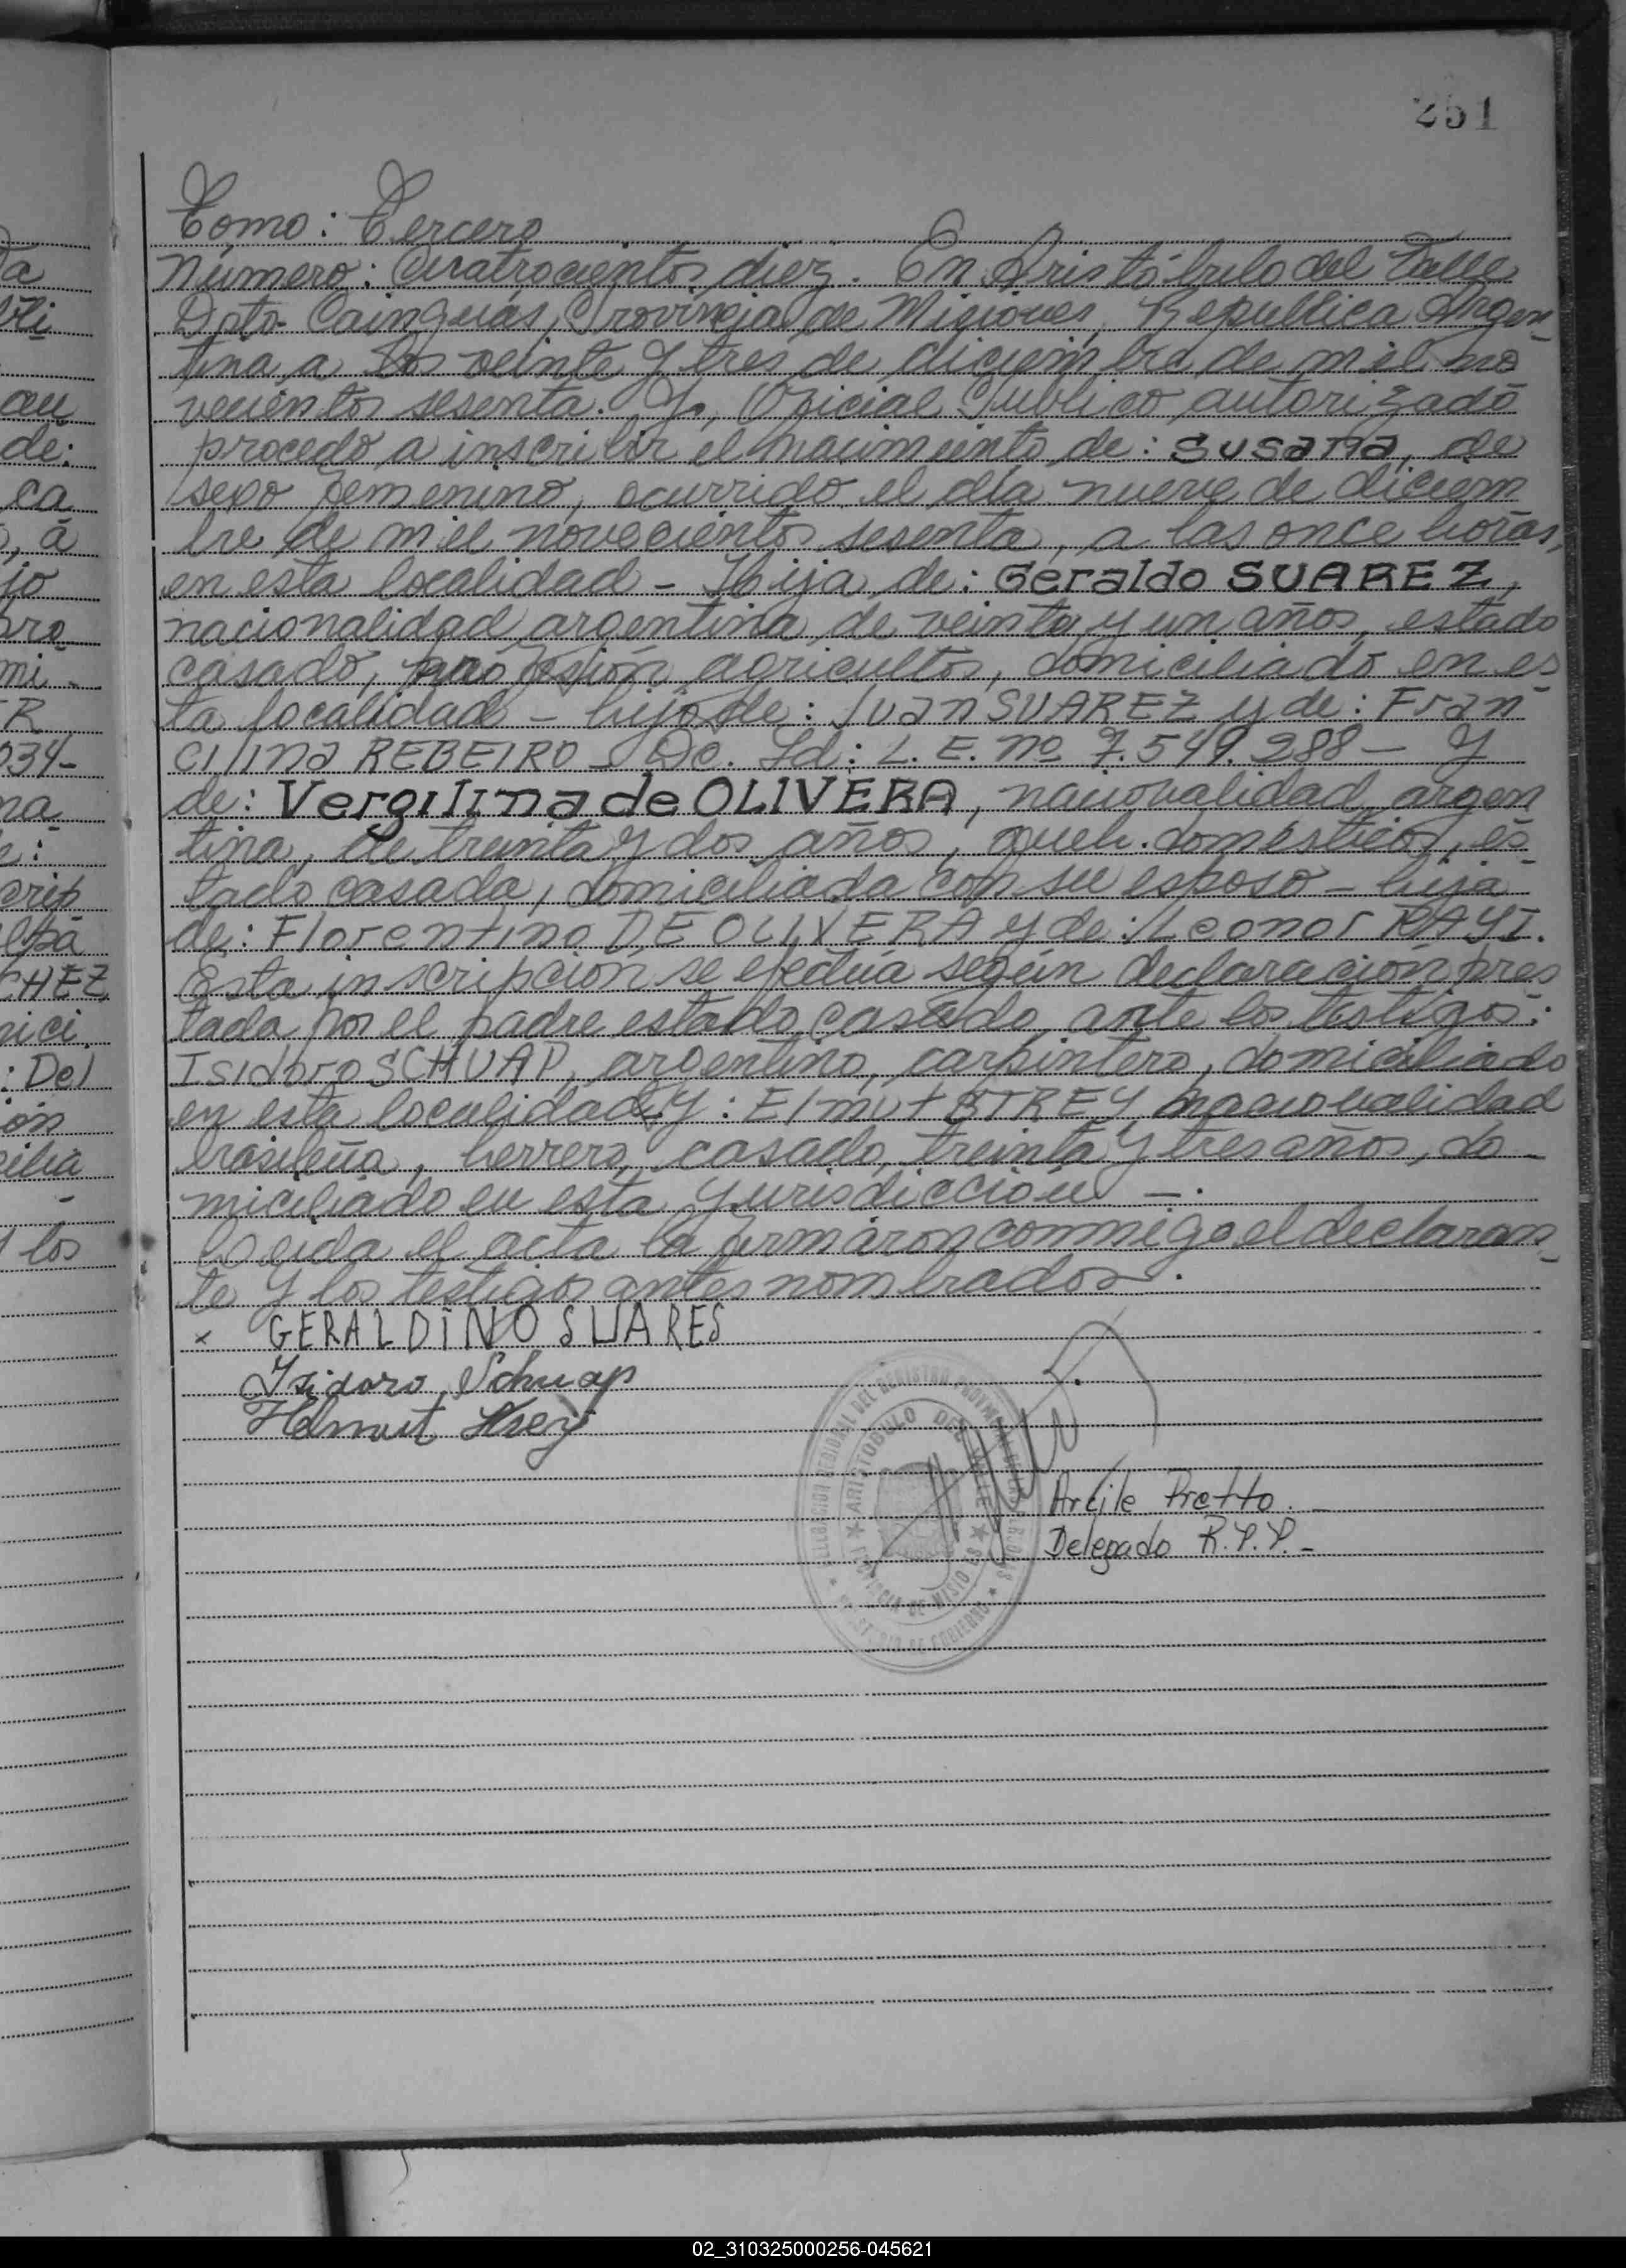 251
Tomo: Tercero
Número: Cuatrocientos diez. En Aristóbulo del Valle
Dpto Cainguás, Provincia de Misiones, Republica Argen-
tina a los veinte y tres de diciembre de mil no
vecientos sesenta. Yo, Oficial Publico autorizado
procedo a inscribir el nacimiento de: Susana, de
sexo femenino, ocurrido el día nueve de diciem
bre de mil novecientos sesenta, a las once horas,
en esta localidad - Hija de: Geraldo SUAREZ,
nacionalidad argentina de veinta y un años, estado
casado, profesión agricultor, domiciliado en es-
ta localidad - hijo de: Juan SUAREZ y de: Fran
cilina REBEIRO - Dc. Id: L. E. nº 7.549.288 - Y
de: Vergilina de OLIVERA, nacionalidad argen
tina, de treinta y dos años, queh. domésticos, es-
tado casada, domiciliada con su esposo - hija
de: Florentino DE OLIVERA y de: Leonor RAYI.
Esta inscripción se efectúa según declaración pres
tada por el padre estado casado, ante los testigos:
Isidoro SCHUAP, argentino, carpintero, domiciliado
en esta localidad y: Elmut STREY, nacionalidad
brasileña, herrero, casado, treinta y tres años, do-
miciliado en esta jurisdicción -.
Leida el acta la firmaron conmigo el declaran-
te y los testigos antes nombrados.
x GERALDINO SUARES
Isidoro Schuap
Helmut Strey
Arcile Pretto.
Delegado R.P.P.-
ARISTOBULO DEL VALLE
a
bli
au
de:
ca
, a
jo
bro
mi-
R
034-
na
e:
crip
CHEZ
nici.
: Del
ón
cilia
los
02_310325000256-045621